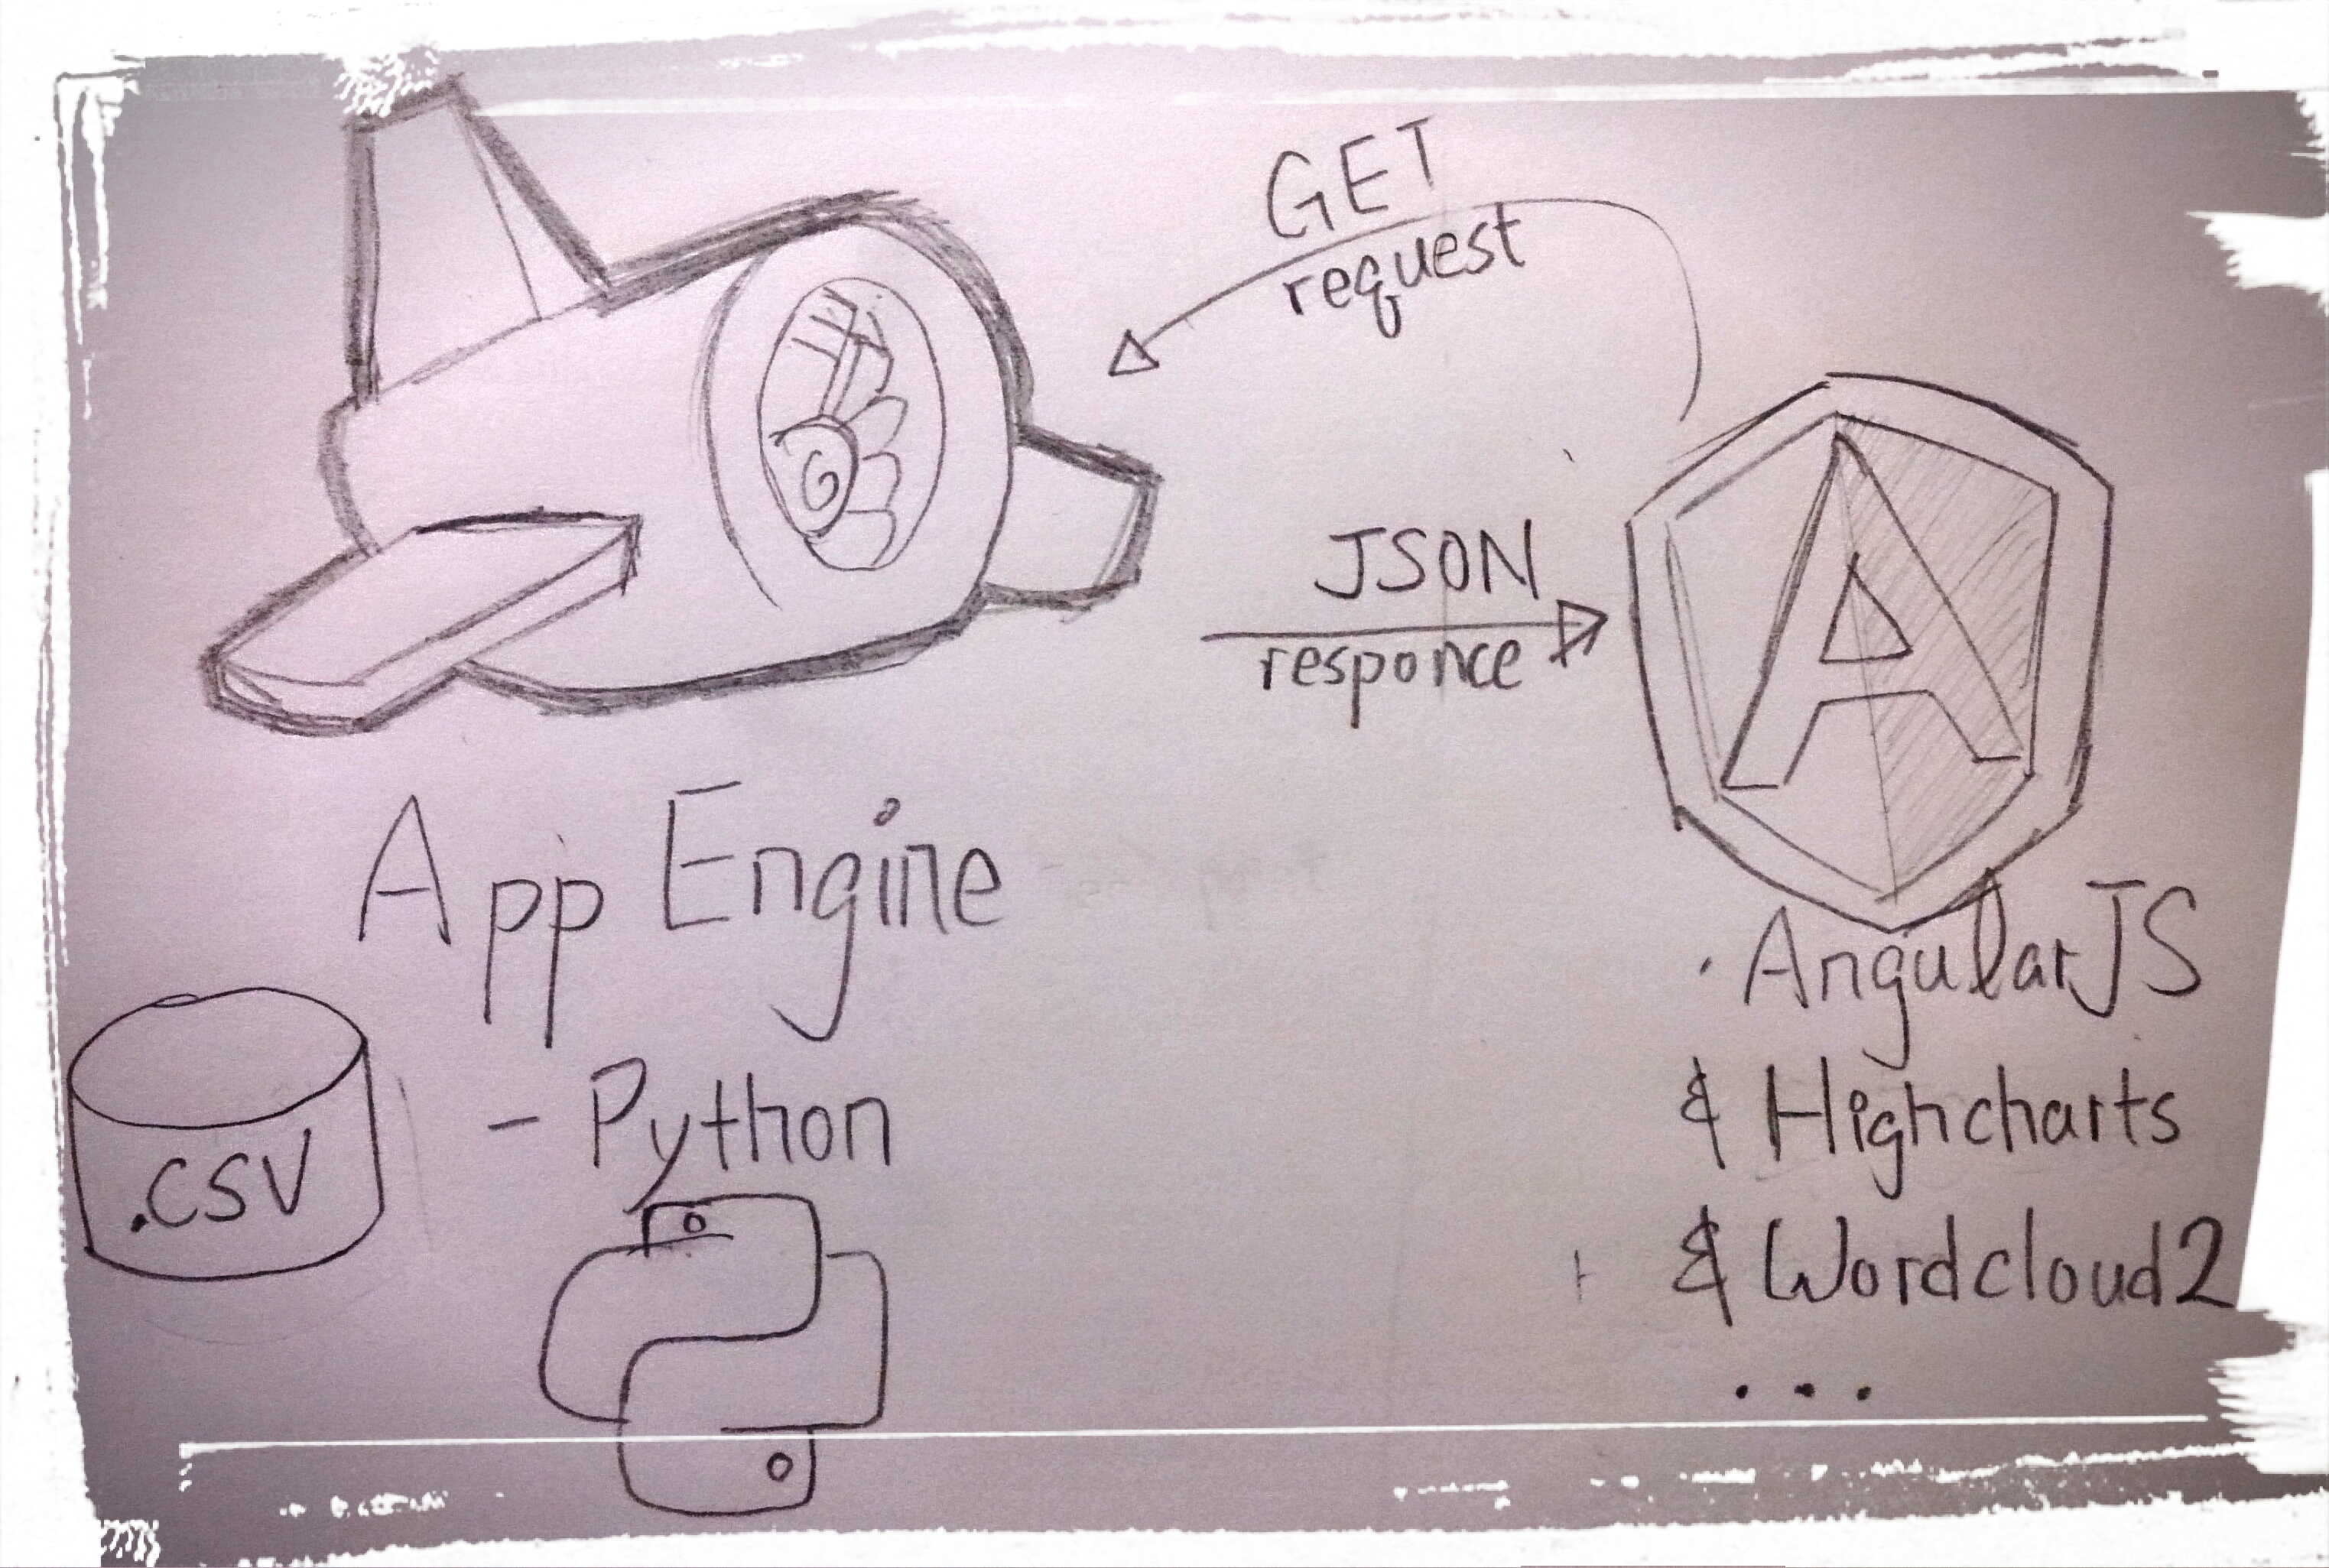 GET
request
JSON
responce
App Engine
- Python
.CSV
A
· AngularJS
& Highcharts
& Wordcloud2
...